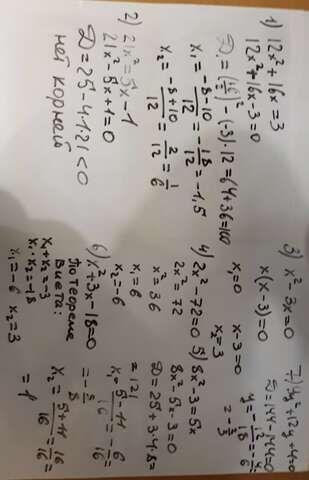 1) 12x²+16x=3
12x²+16x-3=0
D=(16/2)²-(-3)·12=64+36=100
x₁=(-8-10)/12=-18/12=-1,5
x₂=(-8+10)/12=2/12=1/6
2) 21x²=5x-1
21x²-5x+1=0
D=25-4·1·21<0
нет корней
3) x²-3x=0
x(x-3)=0
x₁=0 x-3=0
x₂=3
4) 2x²-72=0
2x²=72
x²=36
x₁=6
x₂=-6
5) 8x²-3=5x
8x²-5x-3=0
D=25+3·4·8=
=121
x₁=(5-11)/16=-6/16=
=-3/8
x₂=(5+11)/16=16/16=
=1
6) x²+3x-18=0
по теореме
Виета:
x₁+x₂=-3
x₁·x₂=-18
x₁=-6 x₂=3
7) 9y²+12y+4=0
D=144-144=0
y=-12/18=
=-2/3